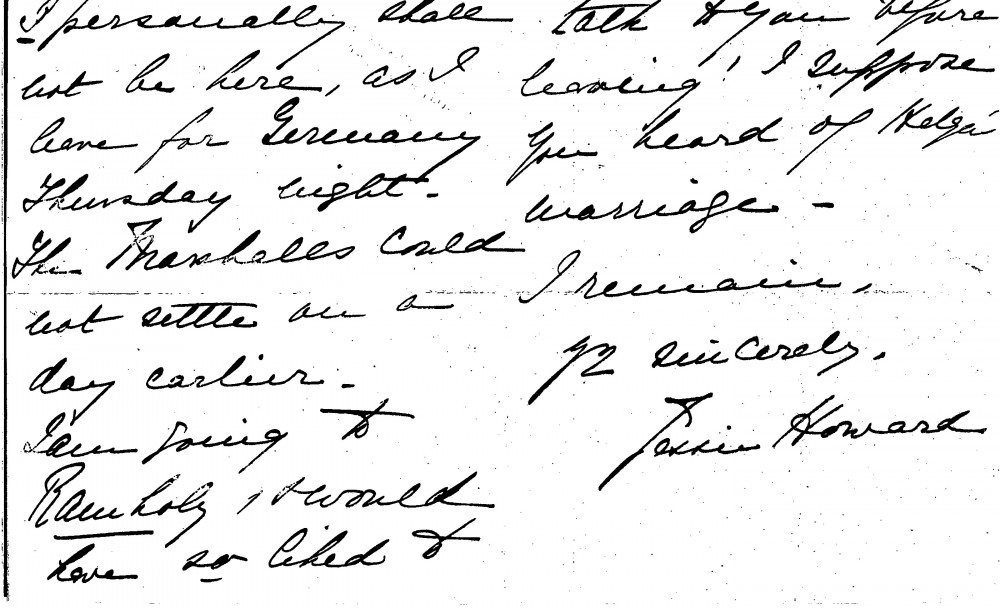 I personally shall
not be here, as I
leave for Germany
Thursday night -
The Marshalls could
not settle on a
day earlier -
I am going to
Ramholz, & would
have so liked to
talk to you before
leaving! I suppose
you heard of Helga'
marriage -
I remain,
yrs sincerely,
Jessie Howard